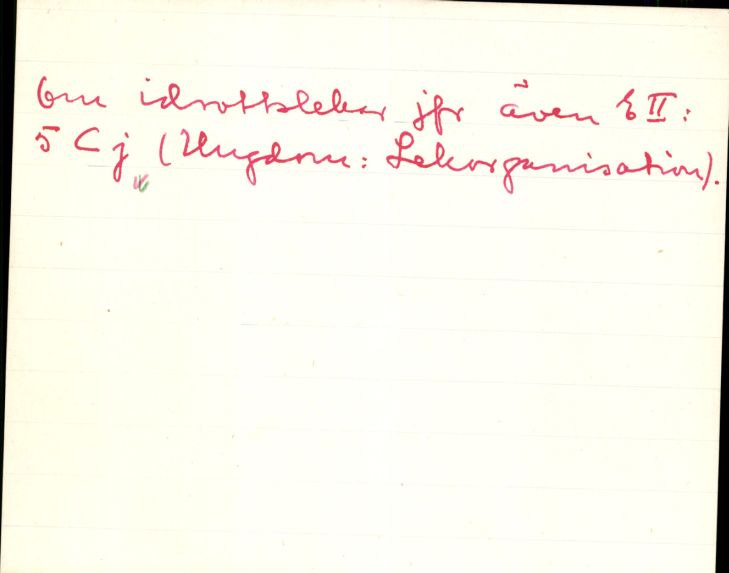 Om idrottslekar jfr även E II:
5 C j (Ungdom: Lekorganisation).